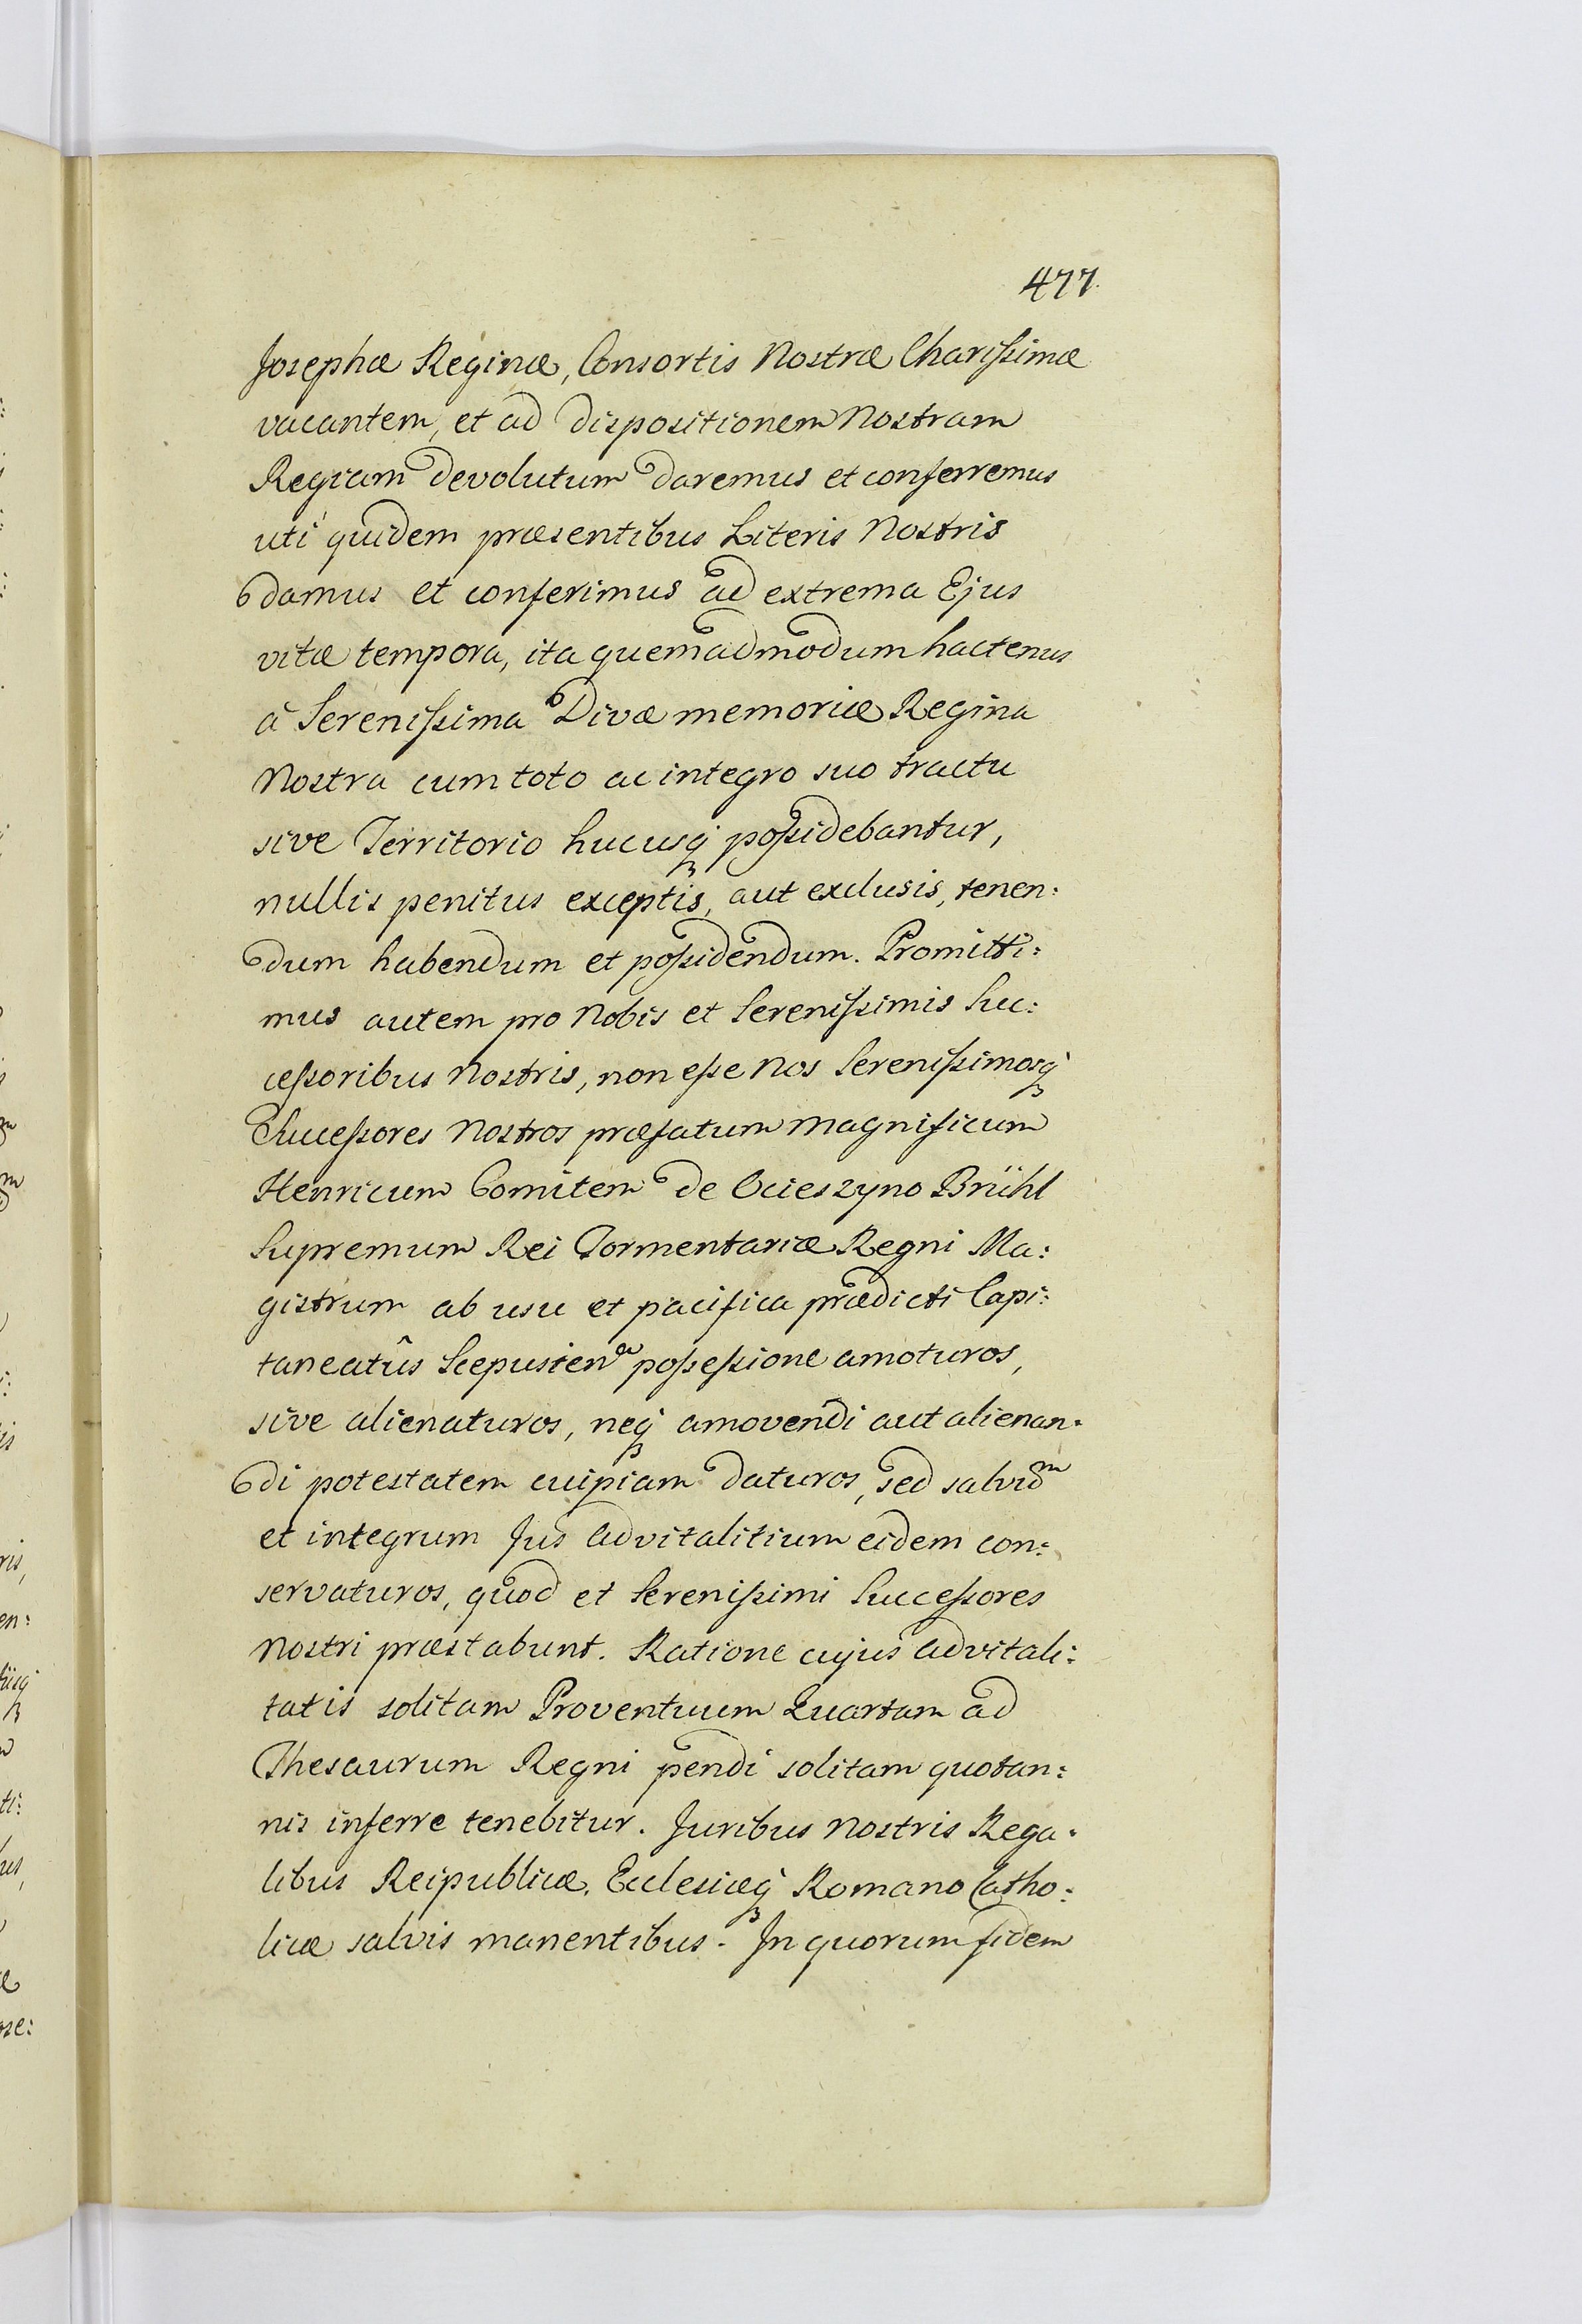 477.
Josephæ Reginæ, Consortis Nostræ Charissimæ
vacantem, et ad dispositionem Nostram
Regiam devolutum daremus et conferremus
uti quidem præsentibus Literis Nostris
damus et conferimus ad extrema Ejus
vitæ tempora, ita quemadmodum hactenus
à Serenissima Divæ memoriæ Regina
Nostra cum toto ac integro suo tractu
sive Territorio hucusq possidebantur,
nullis penitus exceptis, aut exclusis, tenen:
dum habendum et possidendum. Promitti:
mus autem pro Nobis et Serenissimis Suc:
cessoribus Nostris, non esse Nos Serenissimosq
Successores Nostros præfatum Magnificum
Henricum Comitem de Ocieszyno Brühl
Supremum Rei Tormentariæ Regni Ma:
gistrum ab usu et pacifica prædicti Capi:
taneatûs Scepusien possessione amoturos,
sive alienaturos, neq amovendi aut alienan:
di potestatem cuipiam daturos, sed salvum
et integrum Jus Advitalitium eidem con:
servaturos, quod et Serenissimi Successores
Nostri præstabunt. Ratione cujus Advitali:
tatis solitam Proventuum Quartam ad
Thesaurum Regni pendi solitam quotan:
nis inferre tenebitur. Juribus Nostris Rega:
libus Reipublicæ, Ecclesiæq Romano Catho:
licæ salvis manentibus. In quorum fidem